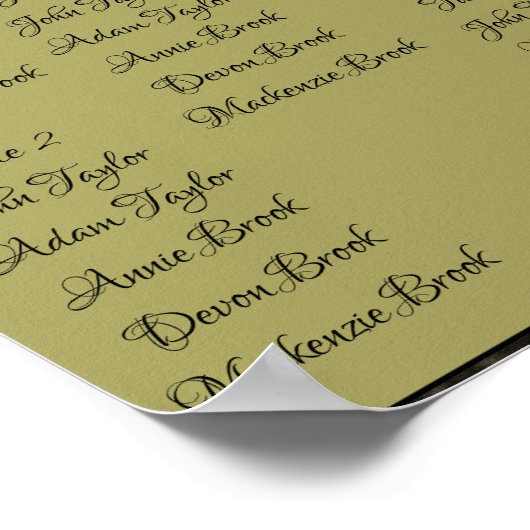 John Taylor
Adam Taylor
Annie Brook
Devon Brook
Mackenzie Brook
Brook
2
John Taylor
Adam Taylor
Annie Brook
Devon Brook
Mackenzie Brook